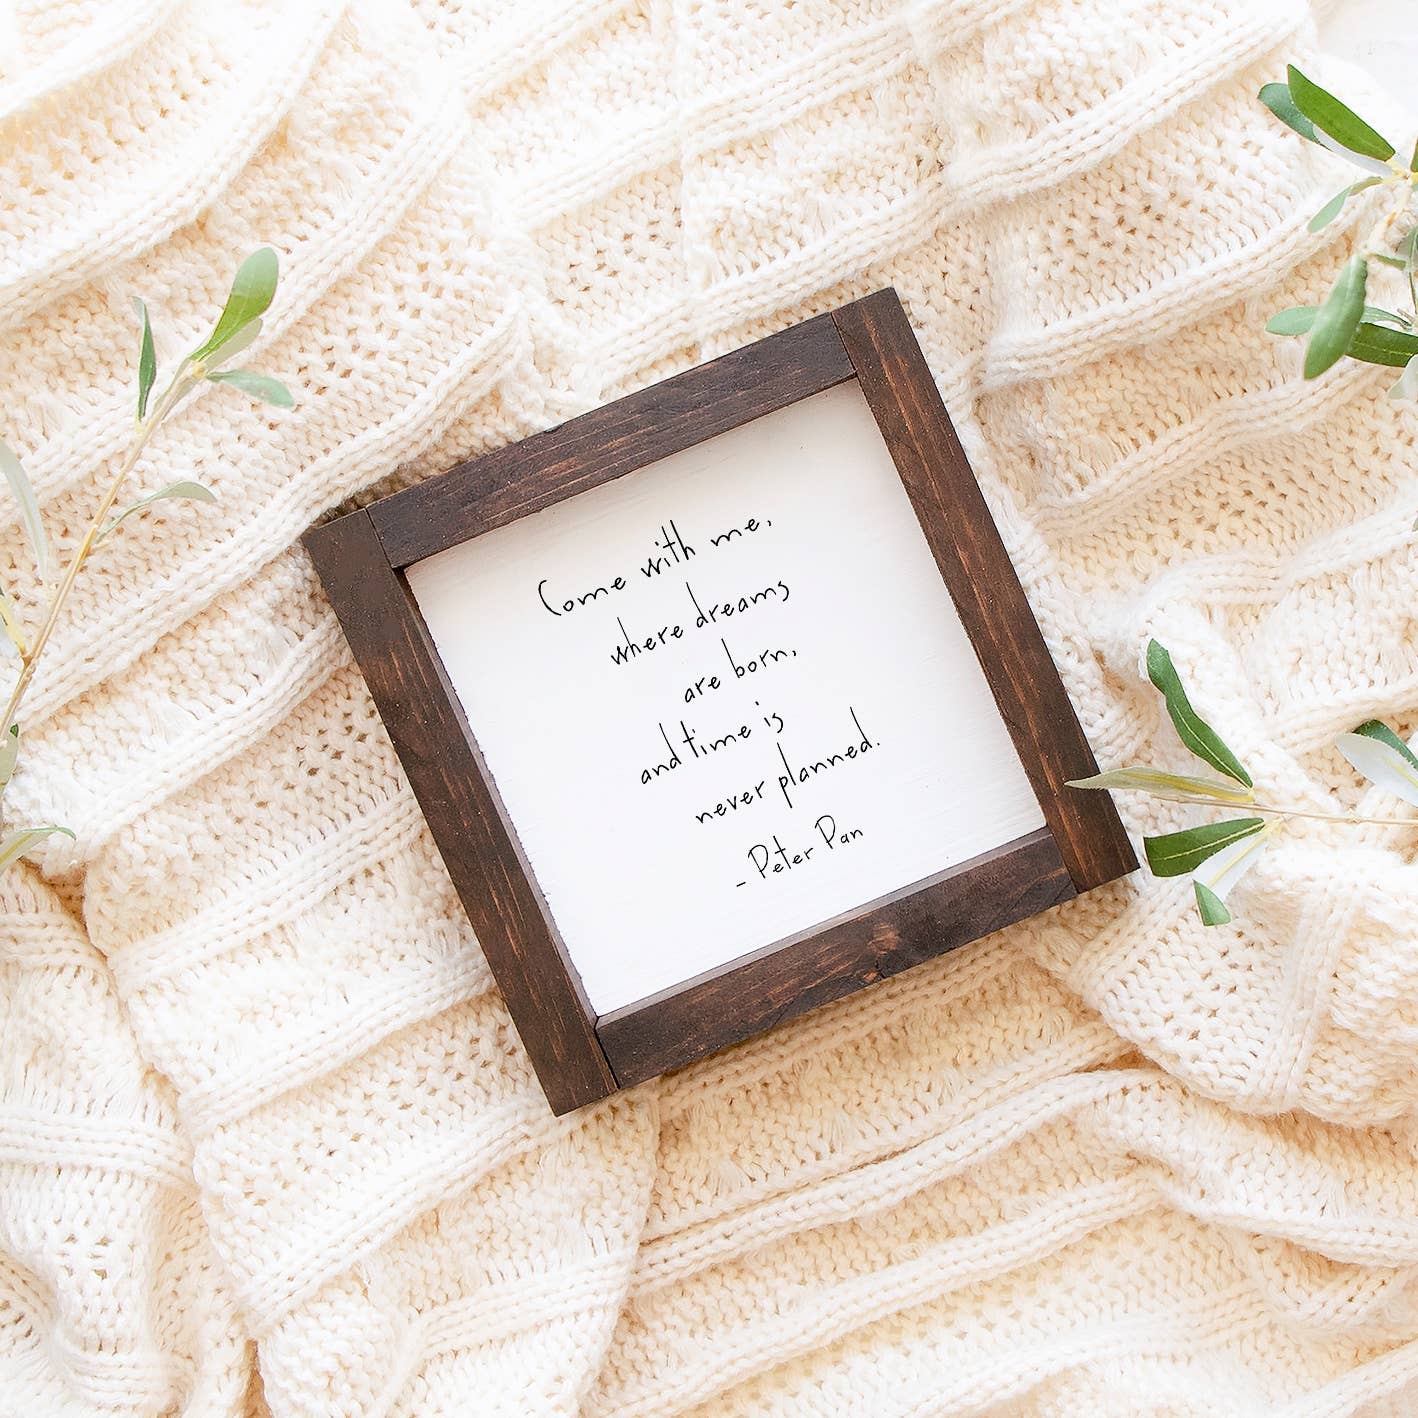 Come with me,
where dreams
are born,
and time is
never planned.
- Peter Pan